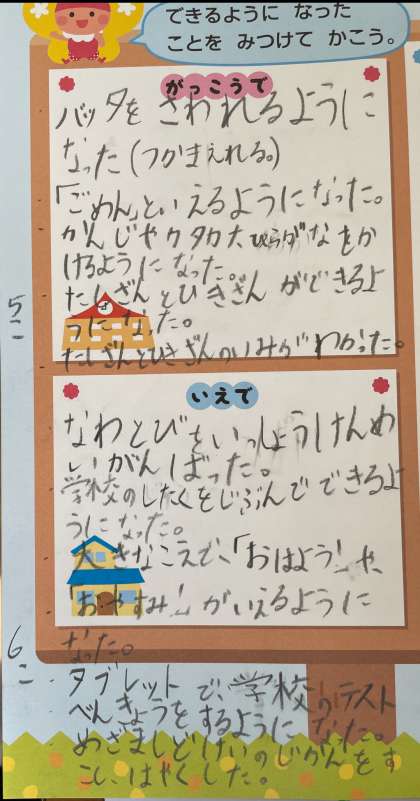 できるように なった
ことを みつけて かこう。
がっこうで
バッタを さわれるように
なった(つかまえれる。)
「ごめん」といえるようになった。
かんじやカタカナひらがなをか
けるようになった。
たしざんとひきざん ができるよ
うになった。
たしざんとひきざんのいみがわかった。
5
こ
いえで
なわとびをいっしょうけんめ
いがんばった。
学校のしたくをじぶんでできるよ
うになった。
大きなこえで、「おはよう」や、
「おやすみ」がいえるように
なった。
6
こ
タブレットで、学校のテスト
べんきょうをするようになった。
めざましどけいのじかんをす
こしはやくした。